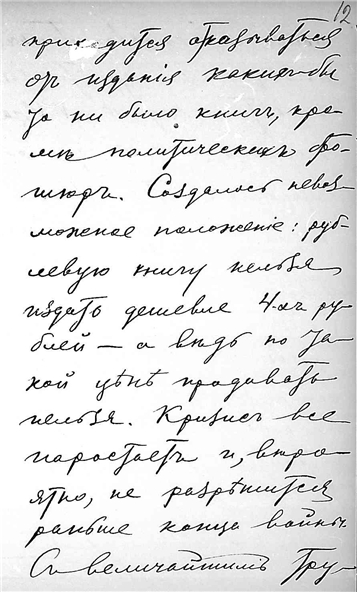 12
приходится отказываться
отъ изданія какихъ бы
то ни было книгъ, кро-
мѣ политическихъ бро-
шюръ. Создалось невоз-
можное положеніе: руб-
левую книгу нельзя
издать дешевле 4-хъ ру-
блей — а вѣдь по та-
кой цѣнѣ продавать
нельзя. Кризисъ все
наростаетъ и, вѣро-
ятно, не разрѣшится
раньше конца войны.
Съ величайшимъ тру-